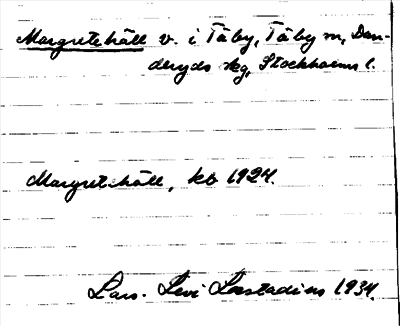 Margretehäll v. i Täby, Täby sn, Dan-
deryds skg, Stockholms l.
Margretehäll, kb 1924.
Lars. Levi Læstadius 1934.